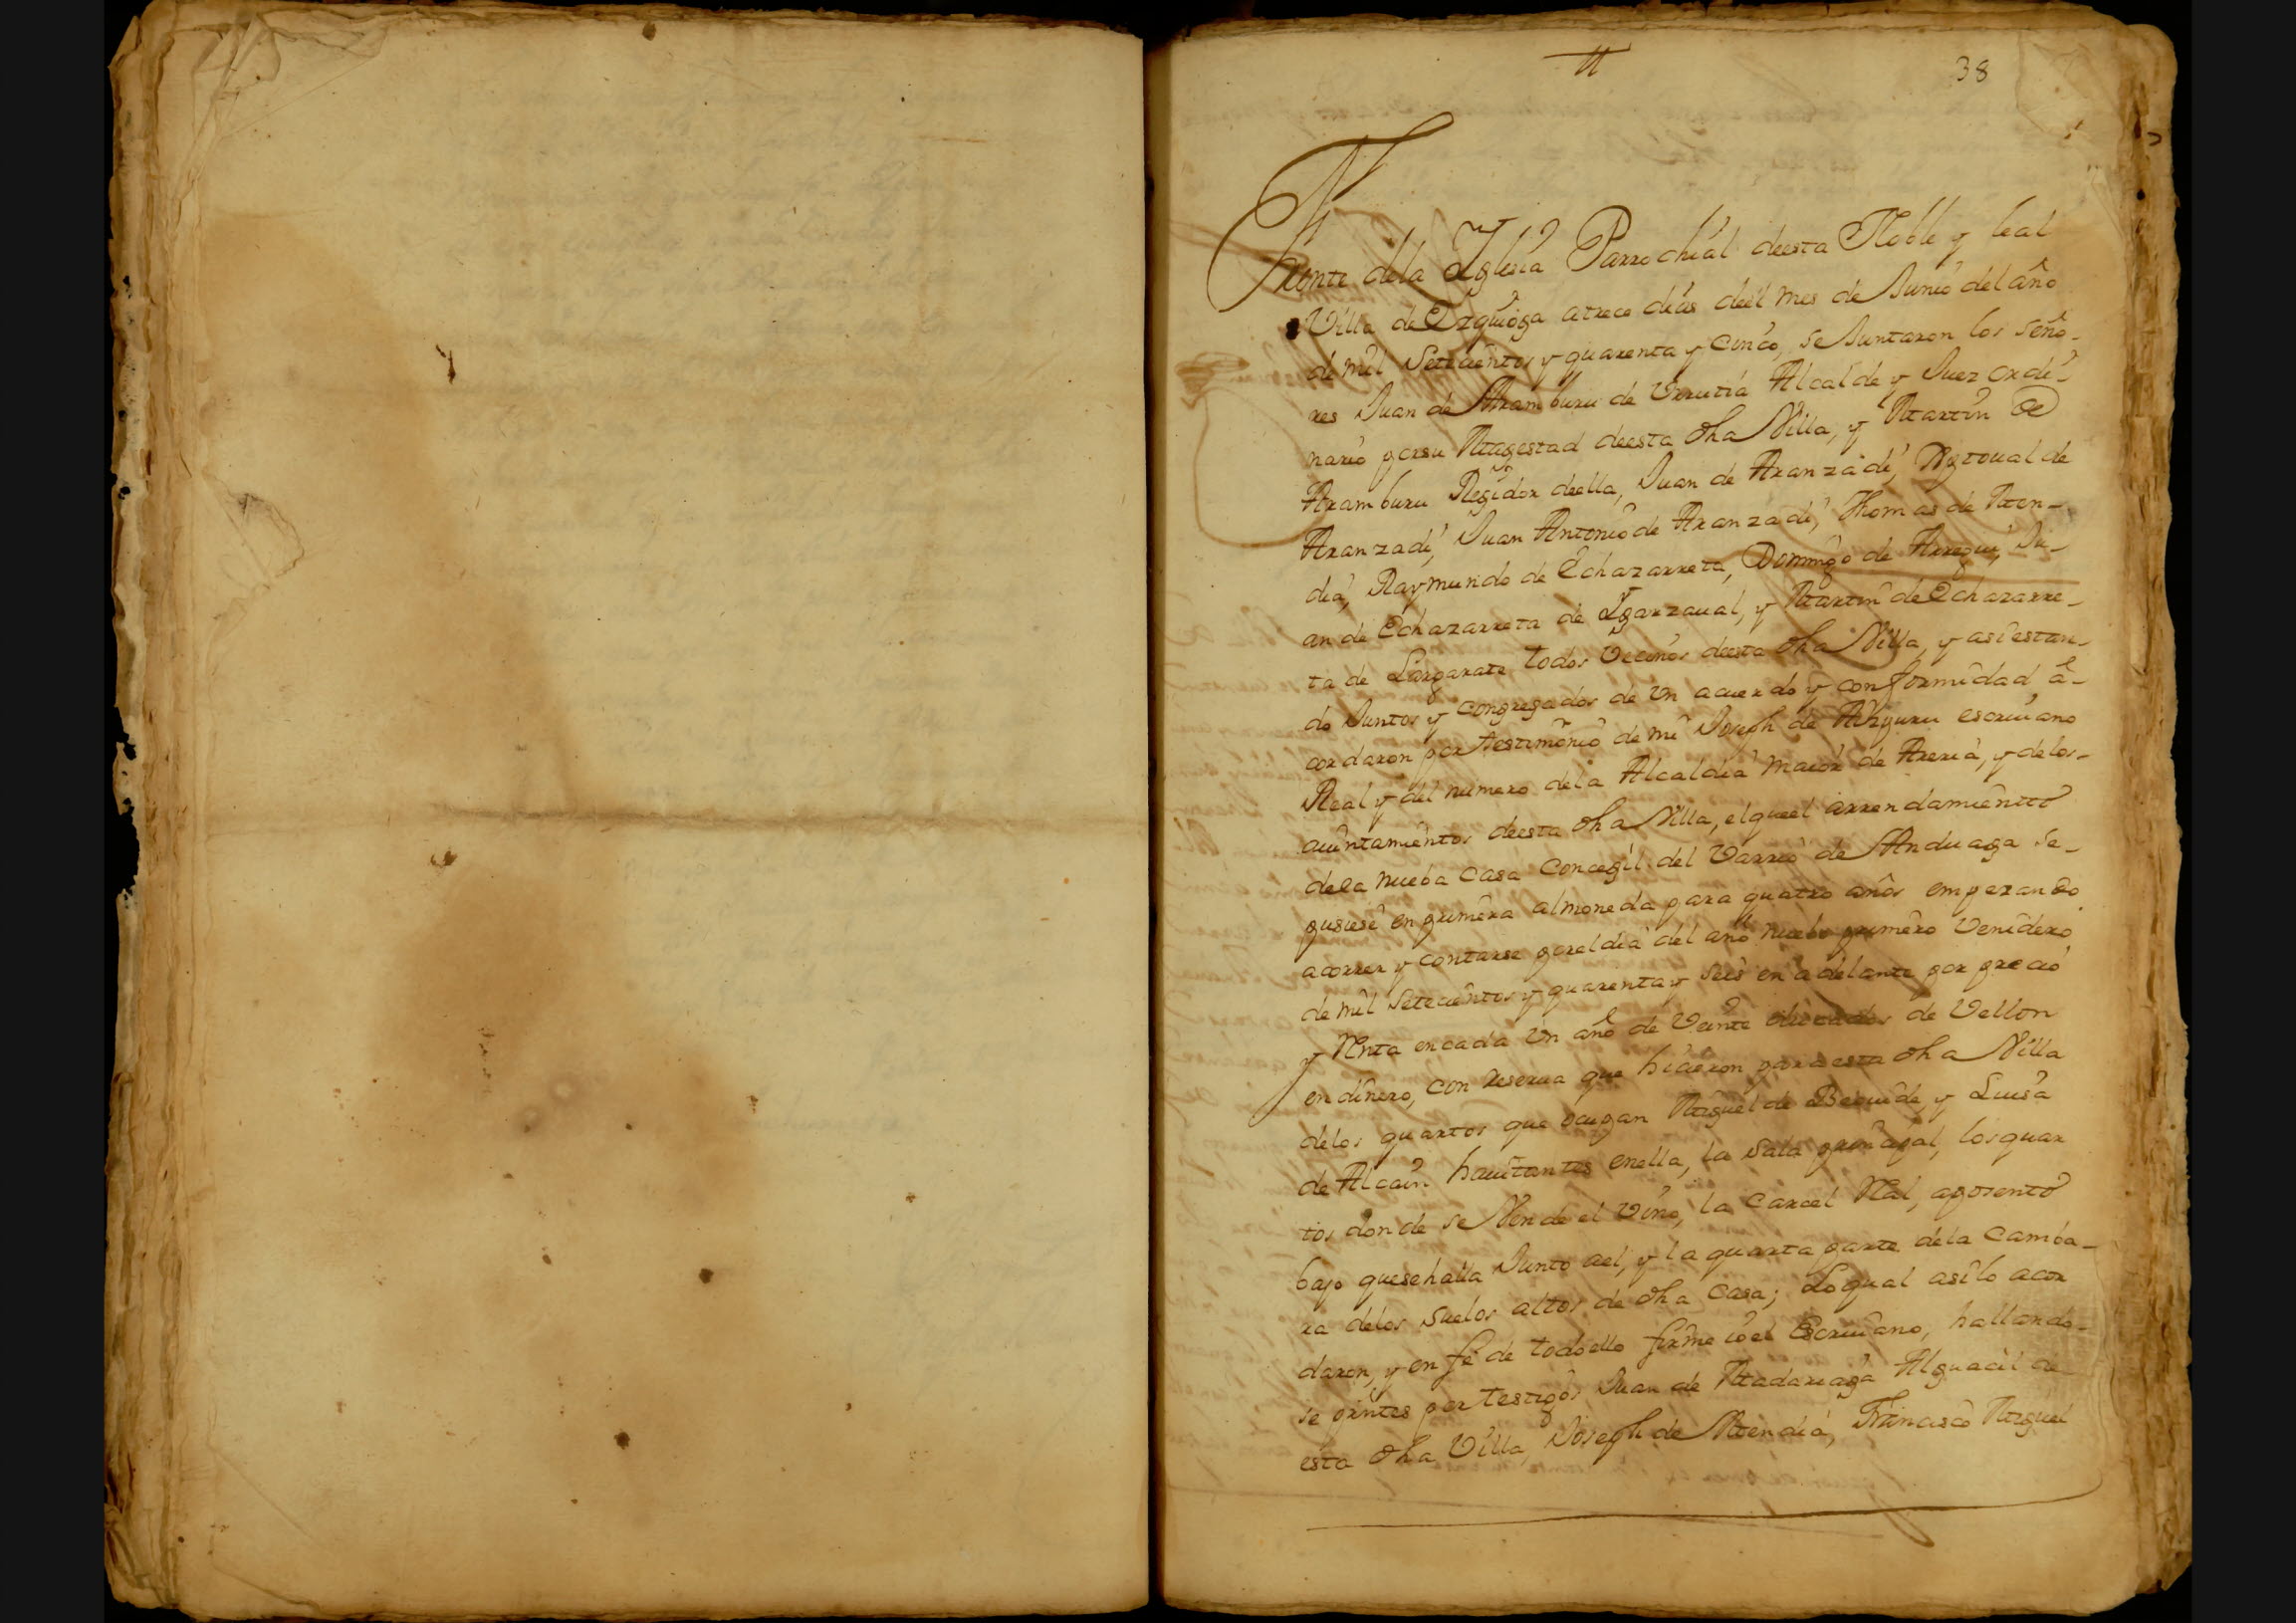 38
Frente dela Iglesia Parrochial deesta Noble y leal
Villa de Ezquioga atrece dias deel mes de Junio del año
de mil Setecientos y quarenta y cinco, se Juntaron los seño-
res Juan de Aramburu de Urrutia Alcalde y Juez ordi-
nario porsu Magestad deesta dha Villa, y Martin de
Aramburu Regidor deella, Juan de Aranzadi, Xptoual de
Aranzadi, Juan Antonio de Aranzadi, Thomas de Men-
dia, Raymundo de Echazarreta, Domingo de Arregui, Ju-
an de Echazarreta de Igarzaual, y Martin de Echazarre-
ta de todos Vecinos deesta dha Villa, y asi estan-
do Juntos y congregados de Vn acuerdo y conformidad a-
cordaron por testimonio de mi Joseph de Aizpuru escriuano
Real y del numero dela Alcaldia maior de Areria, y delos-
aiuntamientos deesta dha Villa, elqueel arrendamiento
dela nueba casa Concegil del Varrio de Anduaga se-
pusiese en primera almoneda para quatro años empezando
acorrer y contarse porel dia del año nuebo primero Venidero
de mil Setecientos y quarenta y seis en adelante por precio
y Renta encada Vn año de Veinte ducados de Vellon
en dinero, con reserua que hicieron para esta dha Villa
delos quartos que ocupan Miguel de y Luisa
de Alcain hauitantes enella, la Sala principal, losquar
tos donde se Vende el Vino, la Carcel Real, aposento
bajo quesehalla Junto ael, y la quarta parte dela Camba-
ra delos Suelos altos de dha Casa; Loqual asilo acor
daron, y en fe de todoello firme io el Escriuano, hallando-
se presentes por testigos Juan de Madariaga Alguacil de
esta dha Villa, Joseph de Mendia, Francisco Miguel